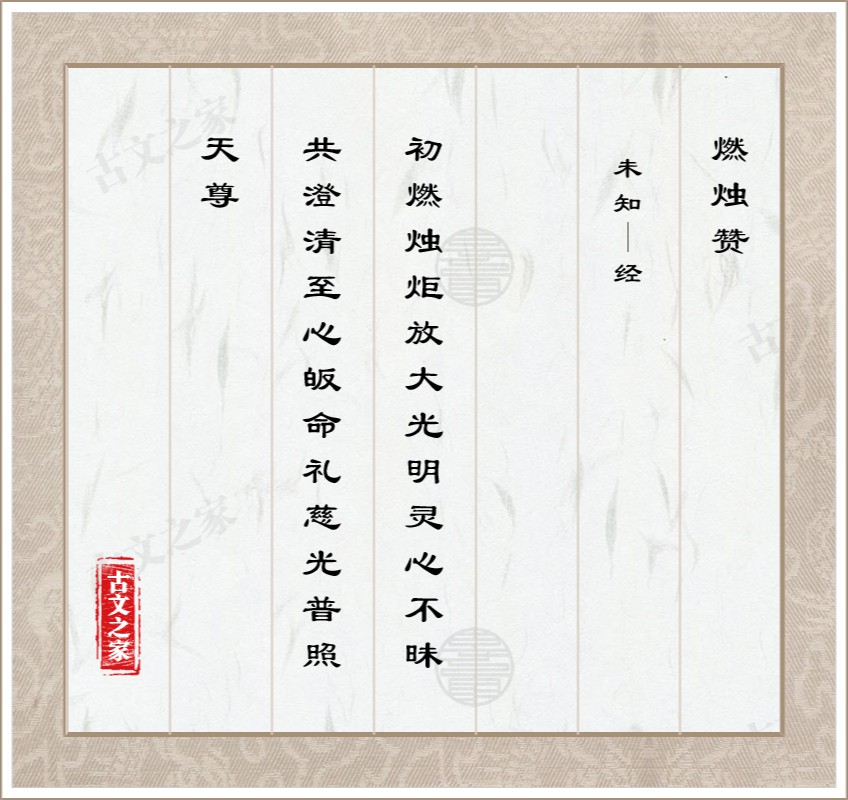 燃烛赞
未知｜经
初燃烛炬放大光明灵心不昧
共澄清至心皈命礼慈光普照
天尊
古文之家
古文之家
古文之家